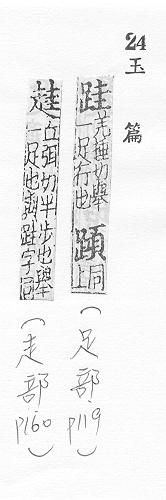 24
玉篇
跬 羌捶切舉一足行也 䠑 同上
(足部 p119)
𧻲 丘弭切半步也舉一足也與跬字同
(走部 p160)